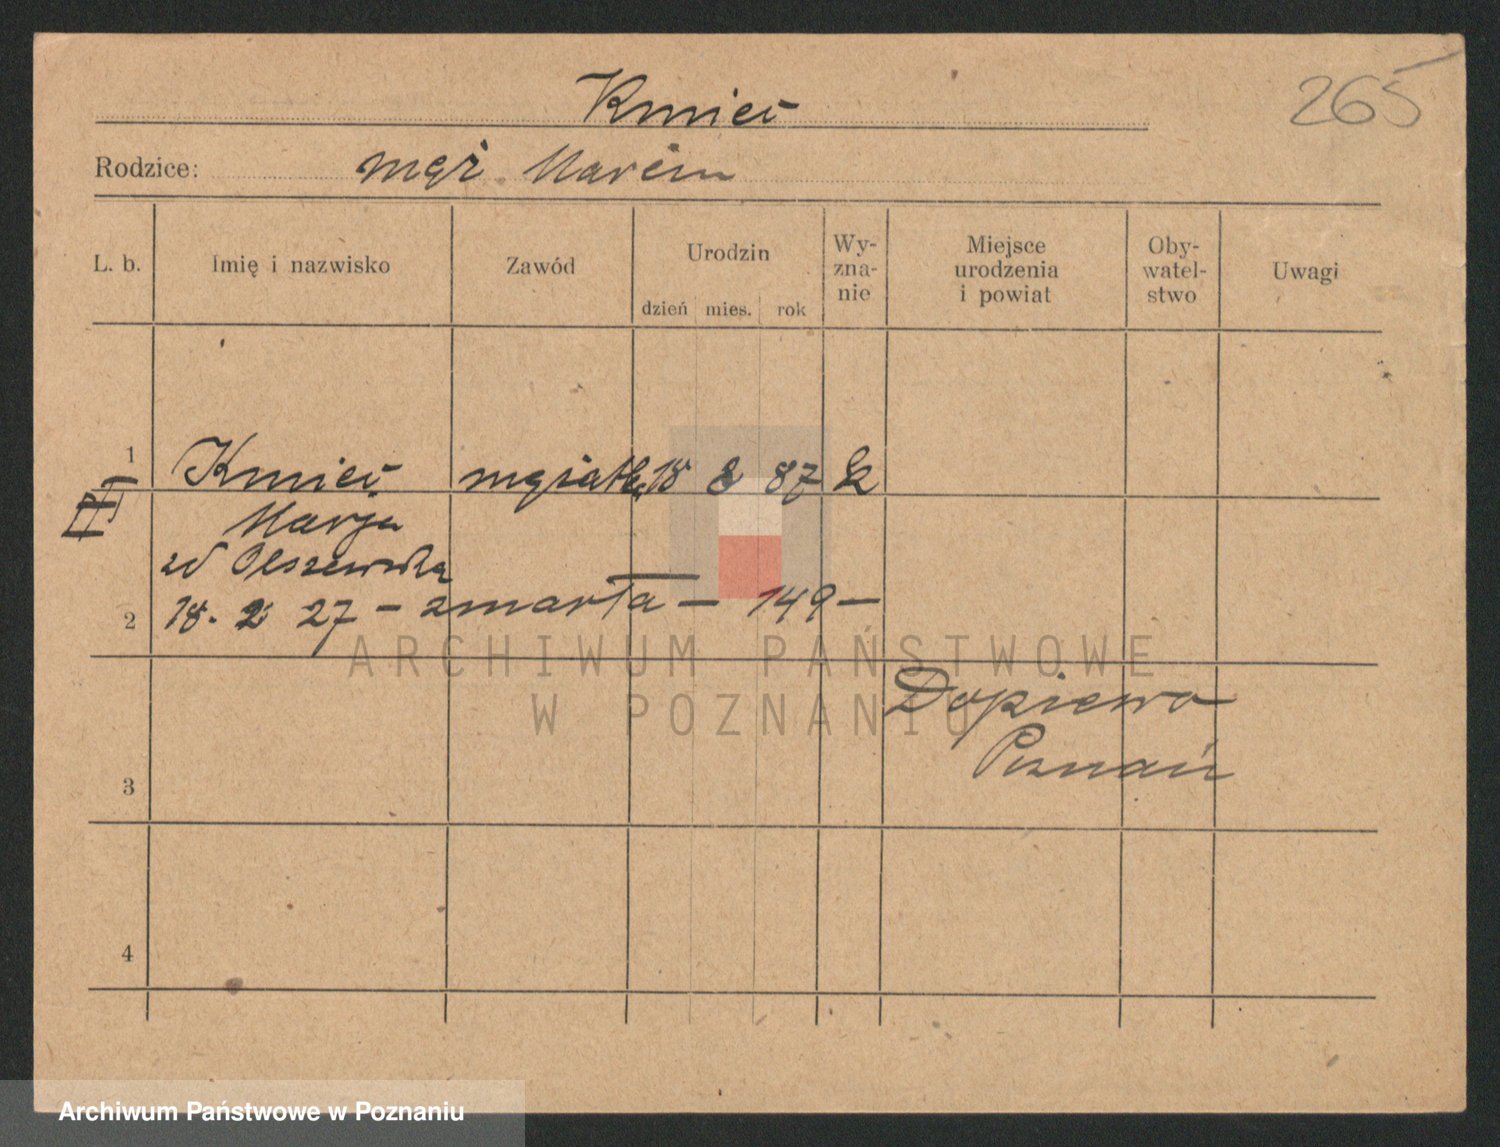 265
Kmieć
Rodzice: mąż Marcin
L. b. Imię i nazwisko Zawód Urodzin dzień mies. rok Wy-zna-nie Miejsce urodzenia i powiat Oby-watel-stwo Uwagi
1 Kmieć mężatka 18 8 87 k
Marja
zd Olszewska
2 18. 2 27 - zmarła - 149 -
Dopiewo
Poznań
3
4
ARCHIWUM PAŃSTWOWE
W POZNANIU
Archiwum Państwowe w Poznaniu